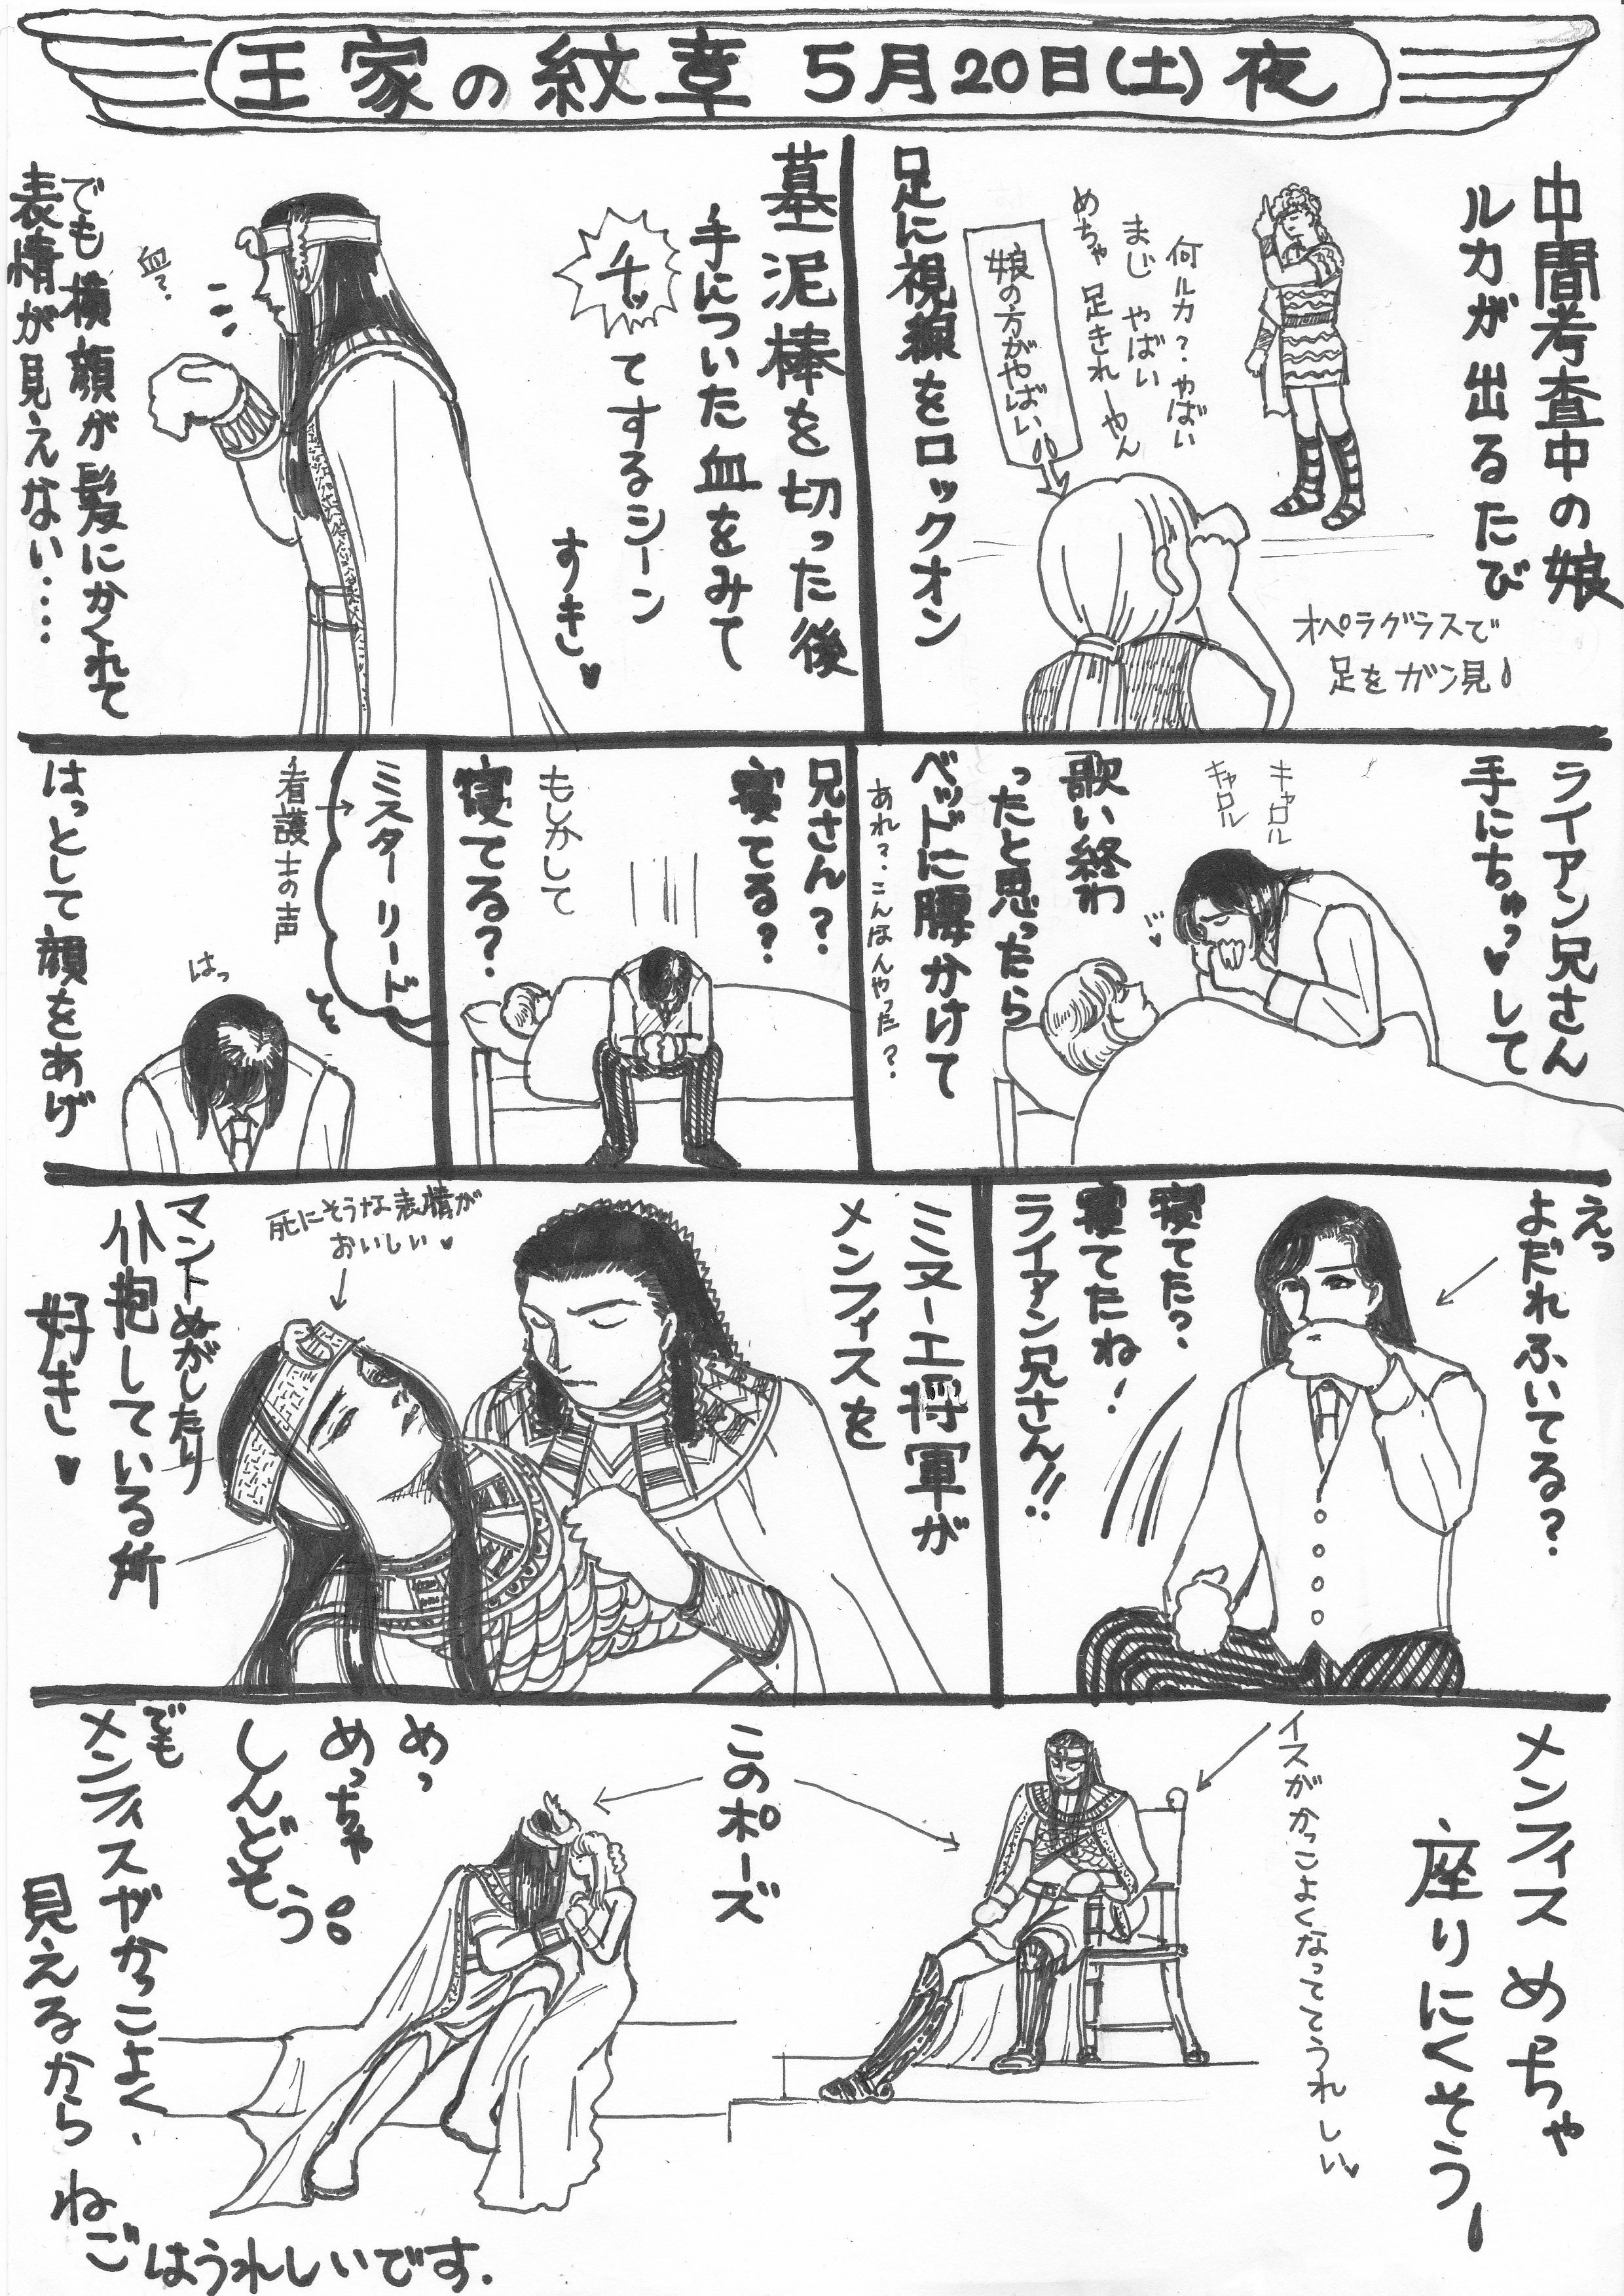 王家の紋章 5月20日(土)夜
中間考査中の娘
ルカが出るたび
何ルカ?やばい
まじ やばい
めちゃ 足きれーやん
娘の方がやばい
足に視線をロックオン
オペラグラスで
足をガン見!
墓泥棒を切った後
手についた血をみて
チッ
てするシーン
すき♥
血?
でも横顔が髪にかくれて
表情が見えない....
ライアン兄さん
手にちゅっ♥して
キャロル
キャロル
歌い終わ
ったと思ったら
ベッドに腰かけて
あれ?こんなんやった?
兄さん?
寝てる?
もしかして
寝てる?
ミスターリード
看護士の声
はっ
はっとして顔をあげ
えっ
よだれふいてる?
寝てた?
寝てたね!
ライアン兄さん!!
ミヌーエ将軍が
メンフィスを
死にそうな表情が
おいしい♥
マントぬがしたり
介抱している所
好き♥
メンフィス めっちゃ
座りにくそうー
イスがかっこよくなっててうれしい♥
このポーズ
めっ
めっちゃ
しんどそう
でも
メンフィスがかっこよく、
見えるから ねご
はうれしいです.